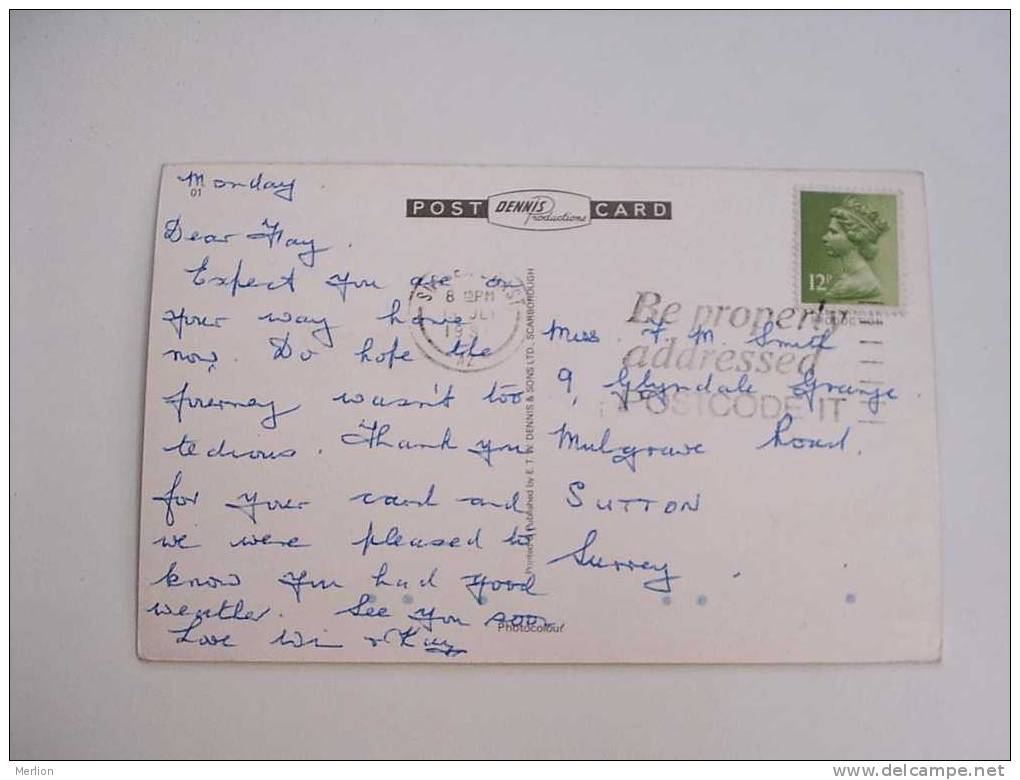 Monday
01
Dear Fay.
Expect you are on
your way home
now. Do hope the
journey wasn't too
tedious. Thank you
for your card and
we were pleased to
know you had good
weather. See you soon
Love Win & Kay
POST DENNIS Productions CARD
8 PM
JLY
Printed & Published by E. T. W. DENNIS & SONS LTD., SCARBOROUGH
Photocolour
12P
Be properly
addressed
POSTCODE IT
Miss F. M. Smith
9, Glyndale Grange
Mulgrave Road.
SUTTON
Surrey.
Merlion
delcampe.net